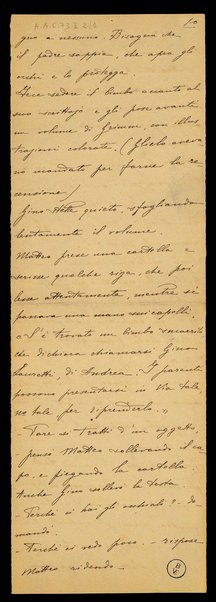 A.R.C. 73 I 2/1
10
qua a nessuno. Bisogna che
il padre sappia, che apra gli
occhi e lo protegga.
Fece sedere il bimbo accanto al
suo scrittojo e gli pose avanti
un volume di Grimm, con illus
trazioni colorate. (Glielo aveva
no mandato per farne la re
censione)
Gino stette quieto, sfogliando
lentamente il volume.
Matteo prese una cartella e
scrisse qualche riga, che poi
lesse attentamente, mentre si
passava una mano sui capelli.
"S'è trovato un bimbo smarrito
che dichiara chiamarsi Gino
Lauretti, di Andrea. I parenti
possono presentarsi in Via tale,
No tale per riprenderlo."
- Pare si tratti d'un oggetto,
- pensò Matteo sollevando il ca-
po, e piegando la cartella.
Anche Gino sollevò la testa.
- Perchè ci hai gli occhiali? - do-
mandò.
- Perchè ci vedo poco, - rispose
Matteo ridendo. -